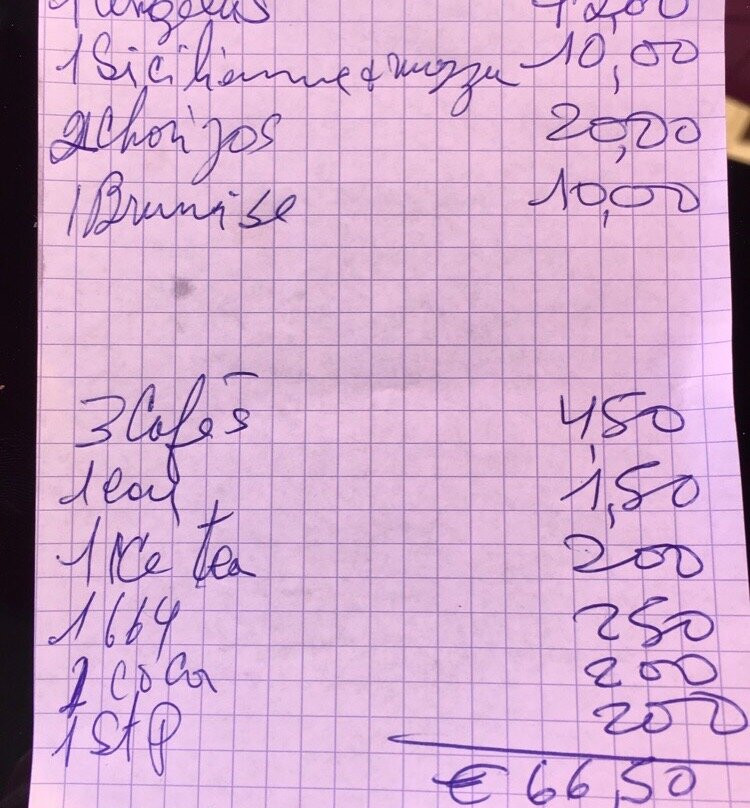 1 Angelus 12,00
1 Sicilienne + mozza 10,00
2 Chorizos 20,00
1 10,00
3 Cafés 4,50
1 eau 1,50
1 Ice Tea 200
1664 250
1 coca 200
1 St P 200
€ 66,50